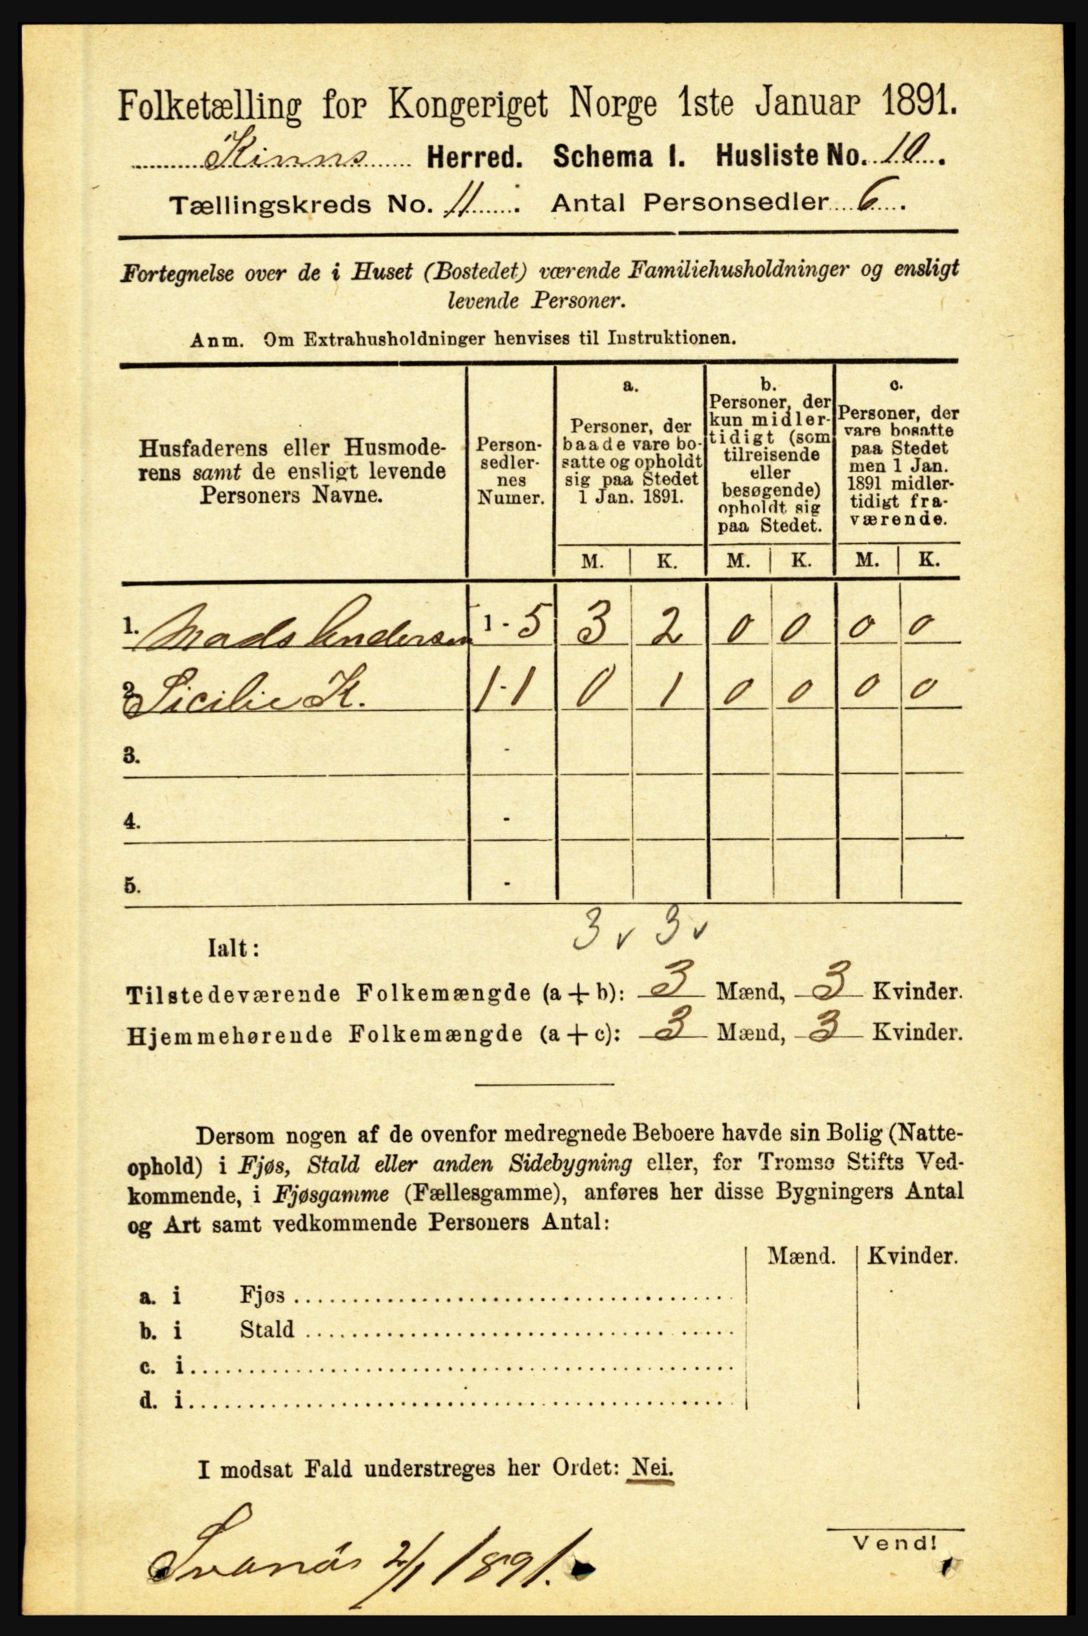 Folketælling for Kongeriget Norge 1ste Januar 1891.
Kinns Herred. Schema I. Husliste No. 10.
Tællingskreds No. 11. Antal Personsedler 6.
Fortegnelse over de i Huset (Bostedet) værende Familiehusholdninger og ensligt
levende Personer.
Anm. Om Extrahusholdninger henvises til Instruktionen.
Husfaderens eller Husmode-
rens samt de ensligt levende
Personers Navne.
Person-
sedler-
nes
Numer.
a.
Personer, der
baade vare bo-
satte og opholdt
sig paa Stedet
1 Jan. 1891.
b.
Personer, der
kun midler-
tidigt (som
tilreisende
eller
besøgende)
opholdt sig
paa Stedet.
c.
Personer, der
vare bosatte
paa Stedet
men 1 Jan.
1891 midler-
tidigt fra-
værende.
M. K. M. K. M. K.
1. Mads Andersen 1-5 3 2 0 0 0 0
2. Sicilie K. 1-1 0 1 0 0 0 0
3. -
4. -
5. -
Ialt: 3 v 3 v
Tilstedeværende Folkemængde (a+b): 3 Mænd, 3 Kvinder.
Hjemmehørende Folkemængde (a+c): 3 Mænd, 3 Kvinder.
Dersom nogen af de ovenfor medregnede Beboere havde sin Bolig (Natte-
ophold) i Fjøs, Stald eller anden Sidebygning eller, for Tromsø Stifts Ved-
kommende, i Fjøsgamme (Fællesgamme), anføres her disse Bygningers Antal
og Art samt vedkommende Personers Antal:
Mænd. Kvinder.
a. i Fjøs
b. i Stald
c. i
d. i
I modsat Fald understreges her Ordet: Nei.
Svanøs 2/1 1891.
Vend!